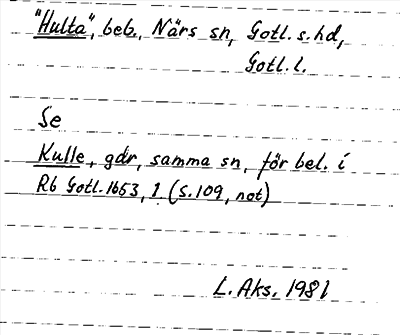 "Hulta", beb., Närs sn, Gotl. s. hd,
Gotl. l.
Se
Kulle, gdr, samma sn, för bel. i
Rb Gotl. 1653, 1. (s. 109, not)
L. Aks. 1981